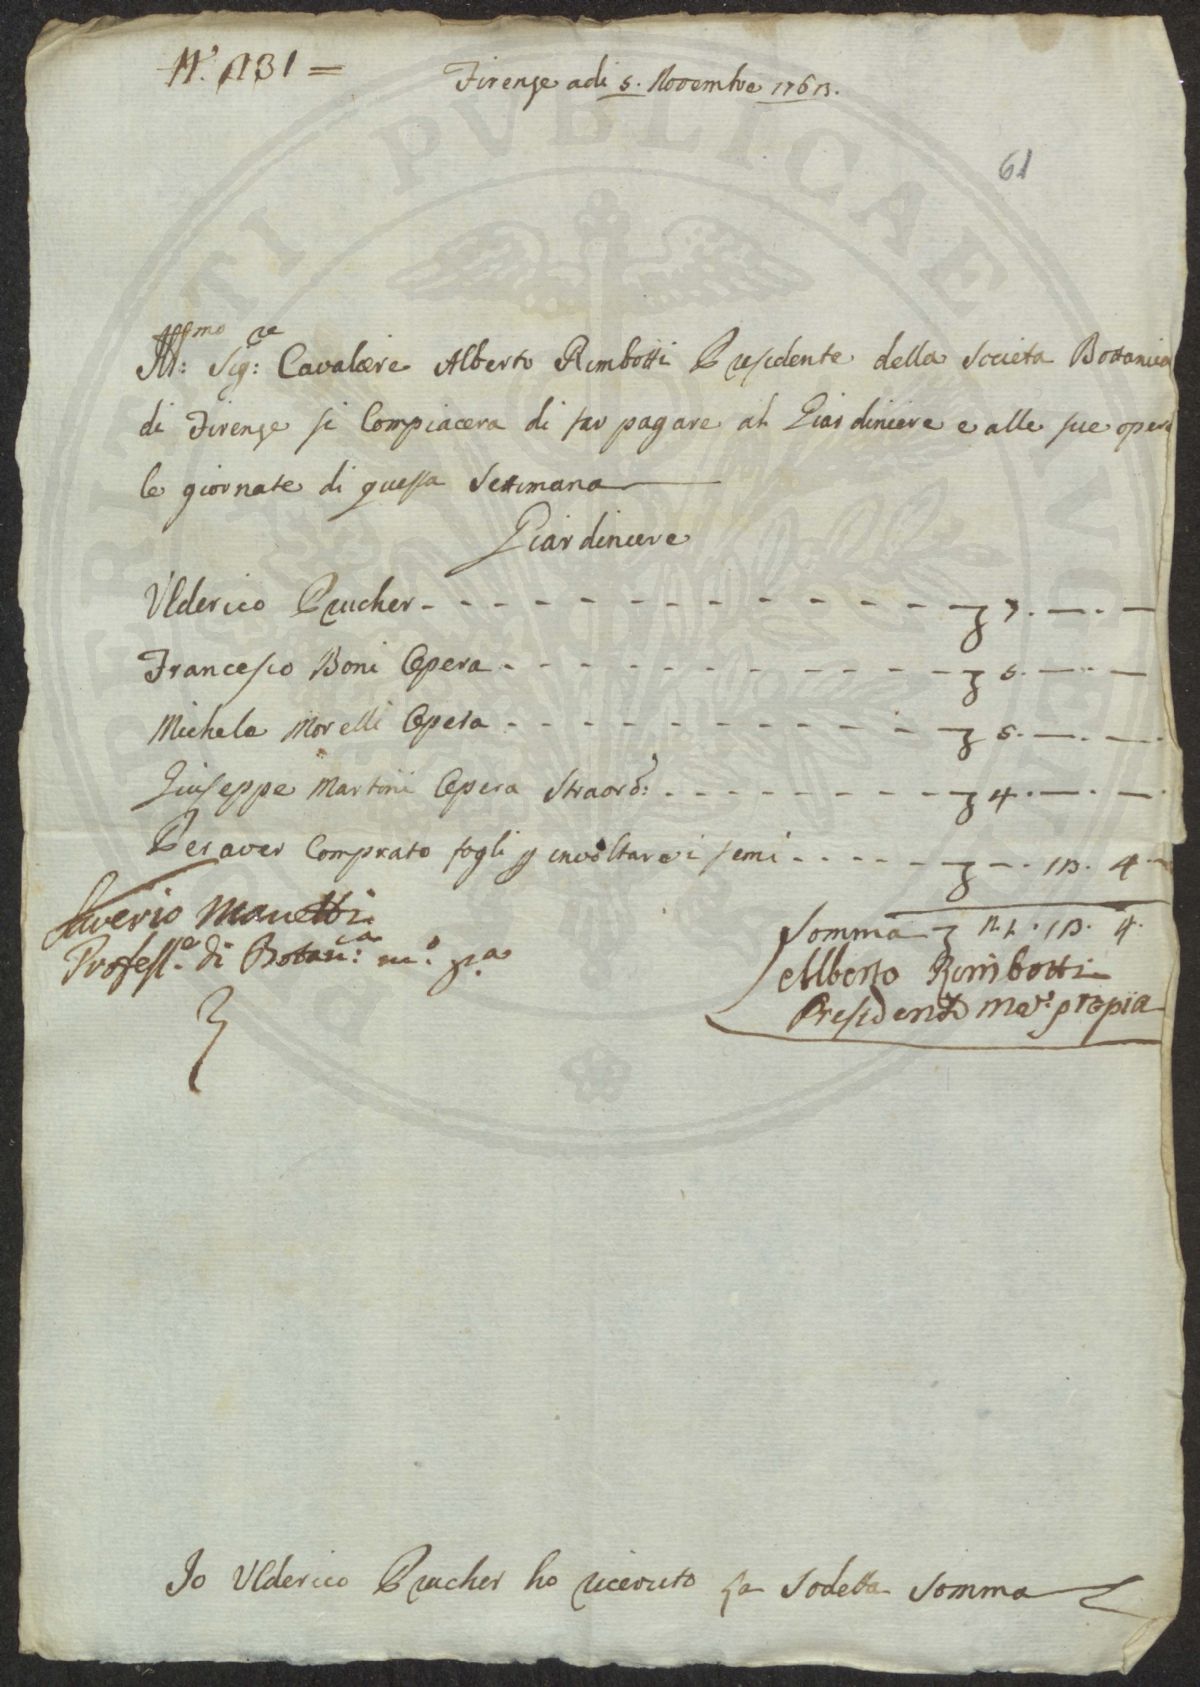 N.° 131 =
Firenze adi 5. Novembre 1763.
61
Ill:mo Sig:re Cavaliere Alberto Rimbotti Presidente della Societa Bottanica
di Firenze si Compiacera di far pagare al Giardiniere e alle sue opere
le giornate di questa Settimana
Giardiniere
Ulderico Prucher - - - - - - - - - - - - £ 7. — . —
Francesco Boni Opera - - - - - - - - - - £ 5. — . —
Michele Morelli Opera - - - - - - - - - - £ 5. — . —
Giuseppe Martini Opera Straord: - - - - - - - £ 4. — . —
Per aver Comprato fogli p involtare i semi - - - - - £ — . 13. 4
Saverio Manetti
Profess.e di Botan:ca m.o p.a
Somma £ 21. 13. 4.
Alberto Rimbotti
Presidente Ma: propia
Io Ulderico Prucher ho riceuuto la Sodetta Somma
PVBLICAE